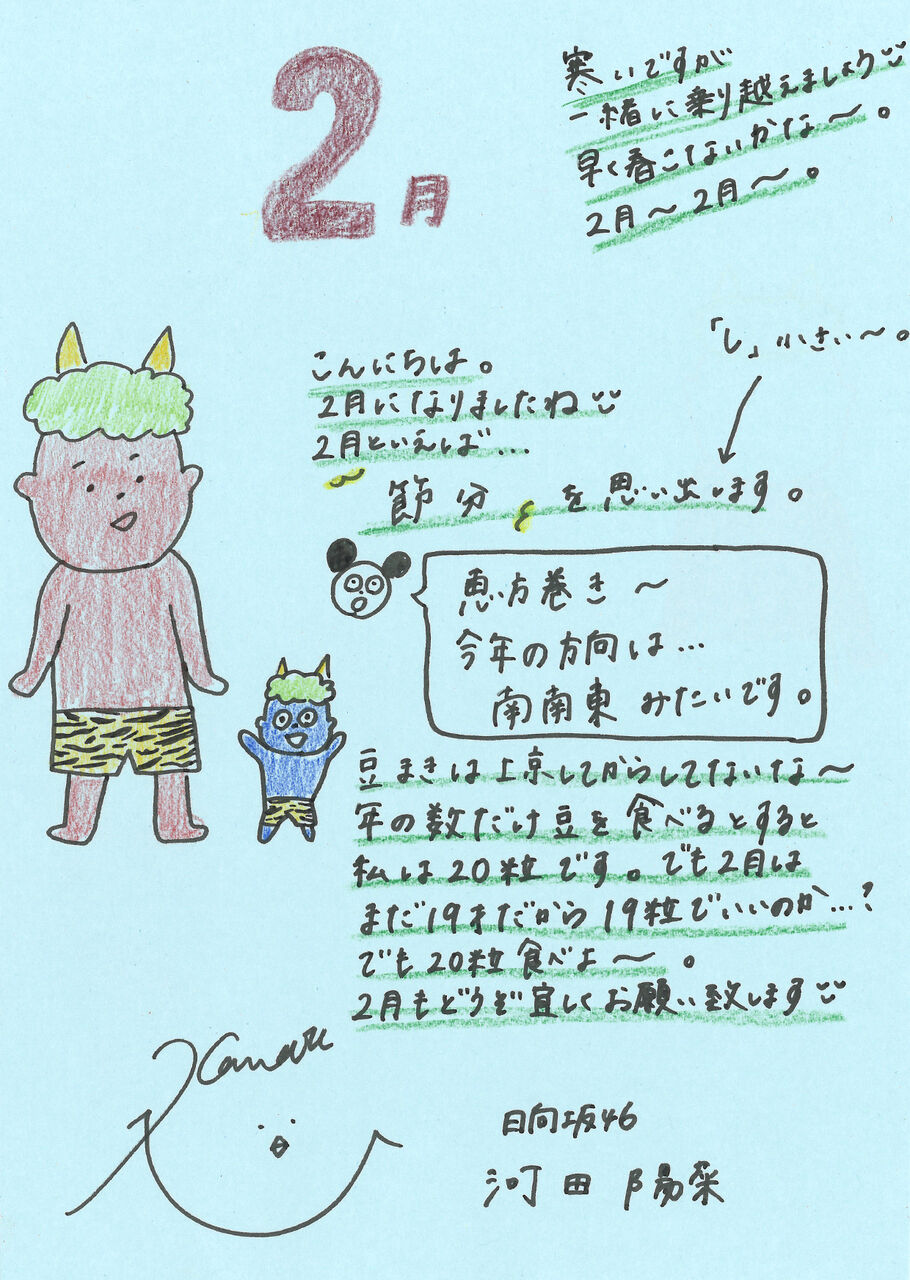 2月
寒いですが
一緒に乗り越えましょう
早く春こないかな〜。
2月〜2月〜。
「し」小さい〜。
こんにちは。
2月になりましたね
2月といえば…
節分を思い出します。
恵方巻き〜
今年の方向は…
南南東みたいです。
豆まきは上京してからしてないな〜
年の数だけ豆を食べるとすると
私は20粒です。でも2月は
まだ19才だから19粒でいいのか…?
でも20粒食べよ〜。
2月もどうぞ宜しくお願い致します
Kanau
日向坂46
河田陽菜